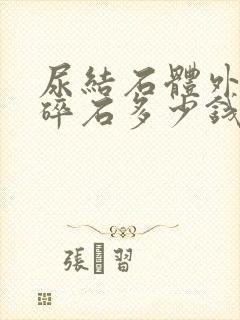 尿結石體外
碎石多少錢
張 習